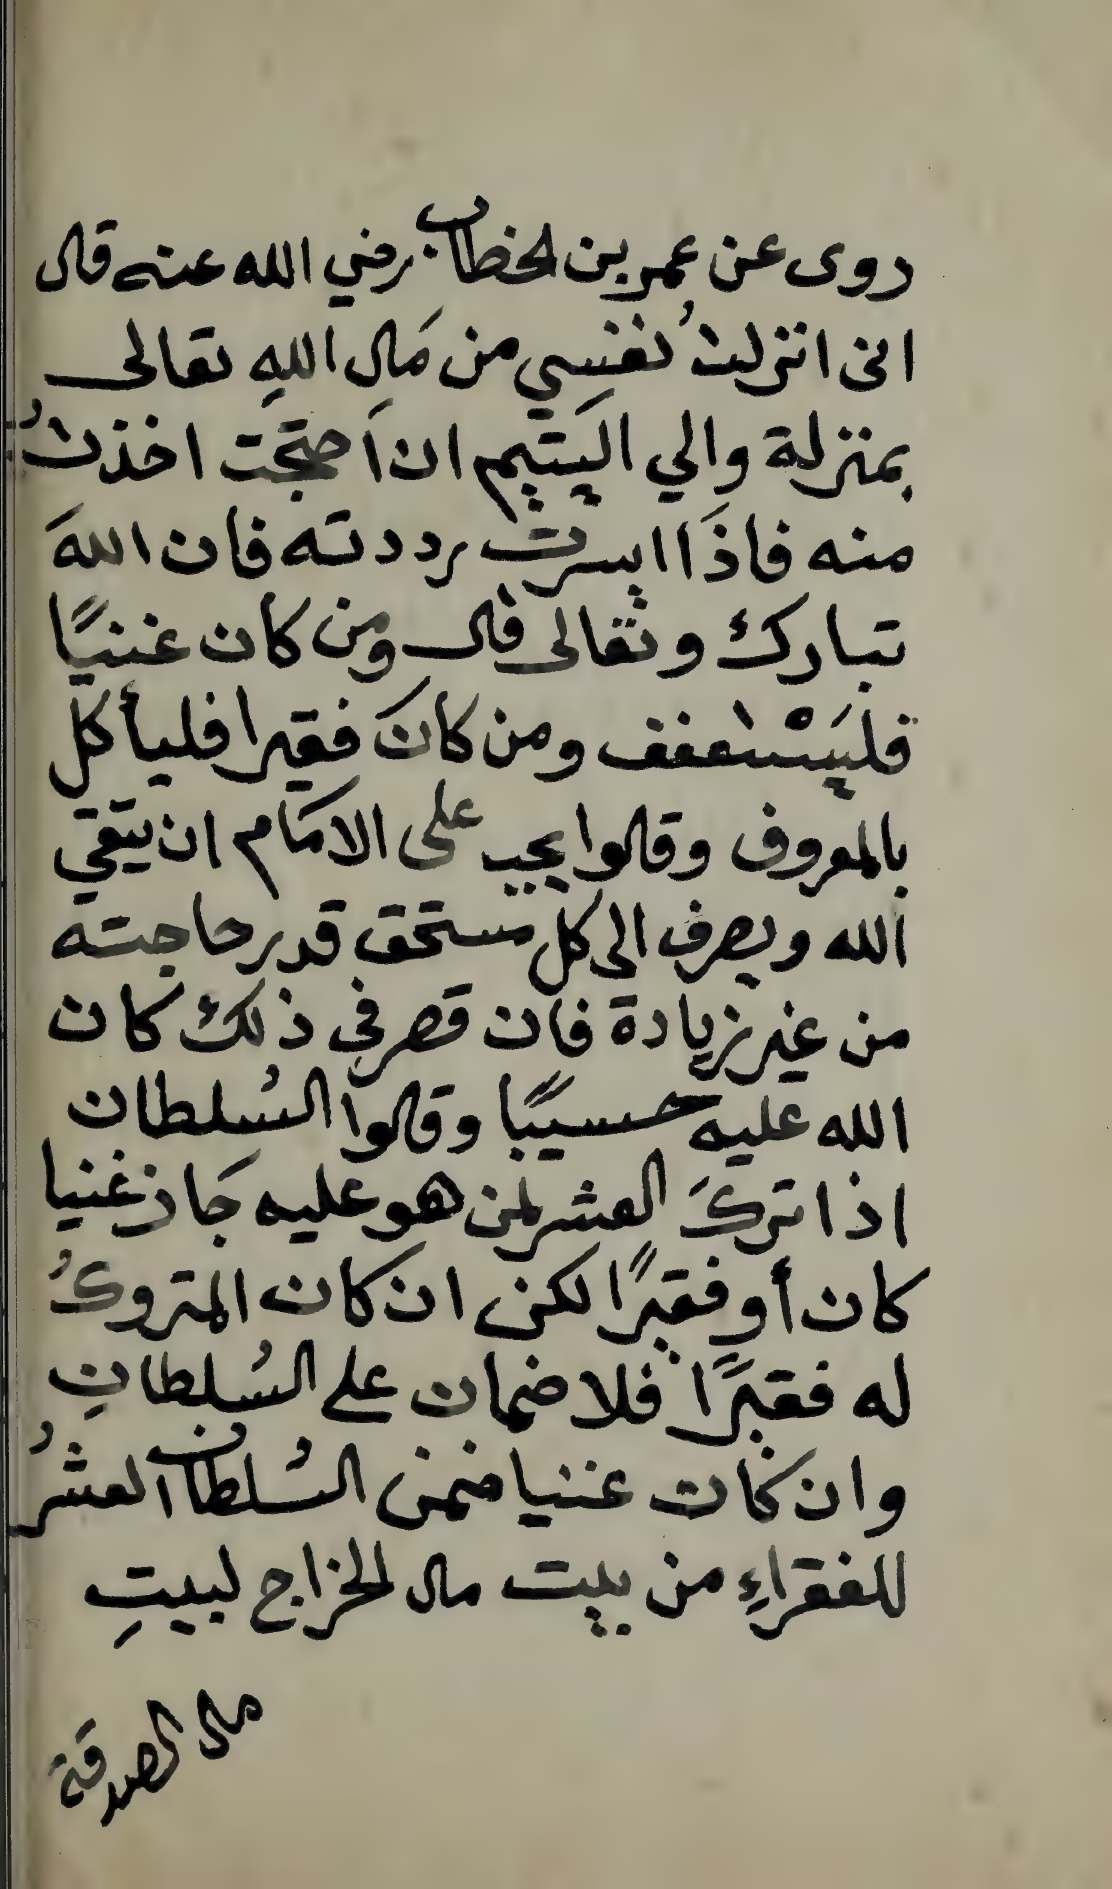 روى عن عمر بن الخطاب رضي الله عنه قال
انى انزلتُ نفسِي من مَال اللهِ تعالى
بمنزلة والي اليَتيم ان اَحتجت اخذتُ
منه فاذَا ايسرت رددته فان اللهَ
تبارك وتعالى قال ومن كان غنيًا
فليَسْتعفف ومن كانَ فقيرا فليأكل
بالمعروف وقالوا يجب على الامَام ان يتقي
الله ويصرف الى كل مستحق قدر حاجته
من غير زيادة فان قصر في ذلك كان
الله عليه حسيبًا وقالوا السُلطان
اذا تركَ العشر لمن هو عليه جَاز غنيا
كان أو فقيرًا لكن ان كان المتروكُ
له فقيرًا فلا ضمان على السُلطانِ
وان كان غنيا ضمن السُلطان العشرُ
للفقراءِ من بيت مال الخراج لبيتِ
مال الصدقة